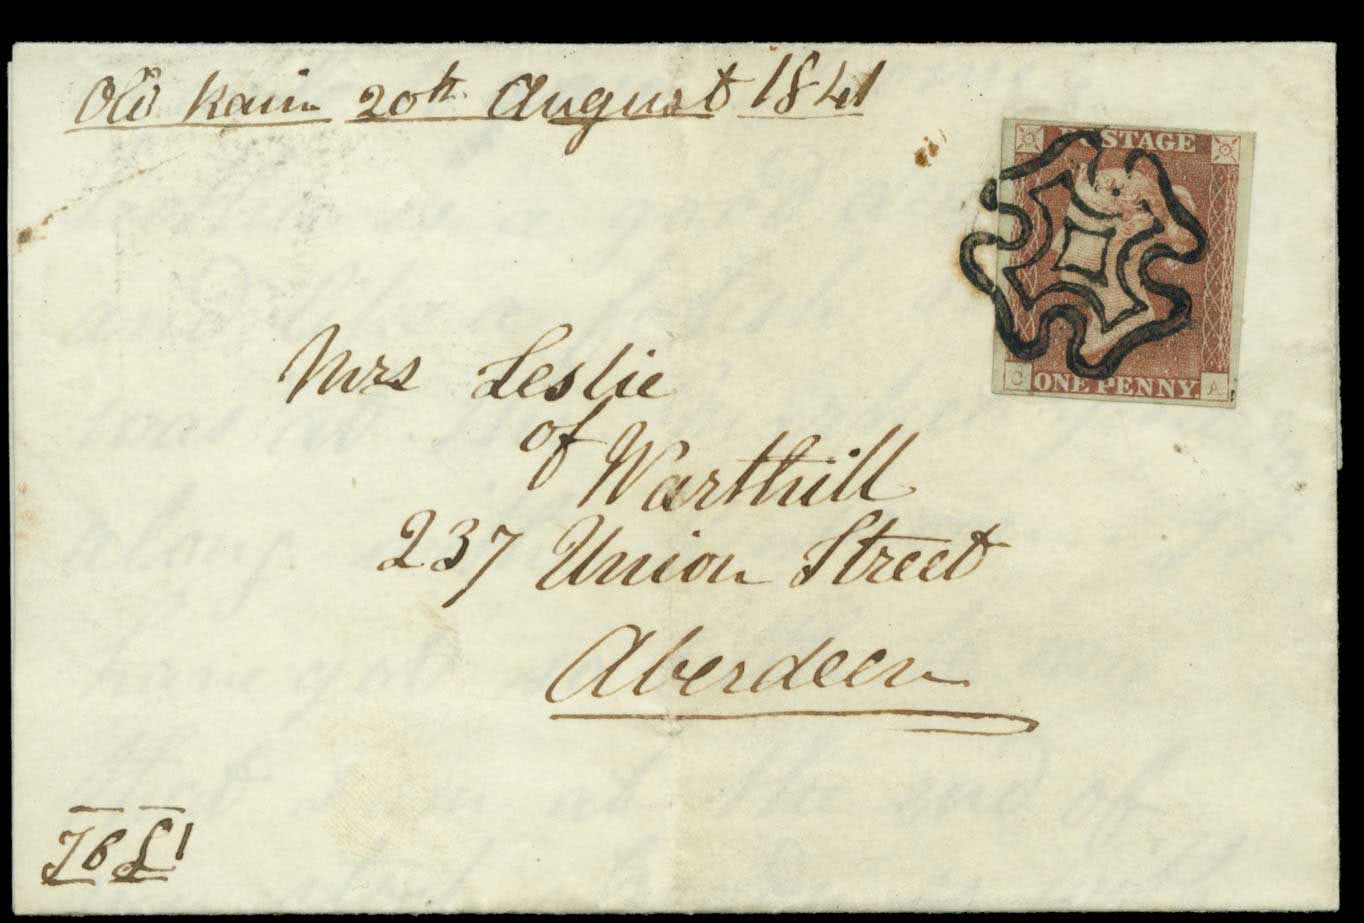 Old Rain 20th August 1841
POSTAGE
Mrs Leslie
of
Warthill
237 Union Street
Aberdeen
C ONE PENNY. A